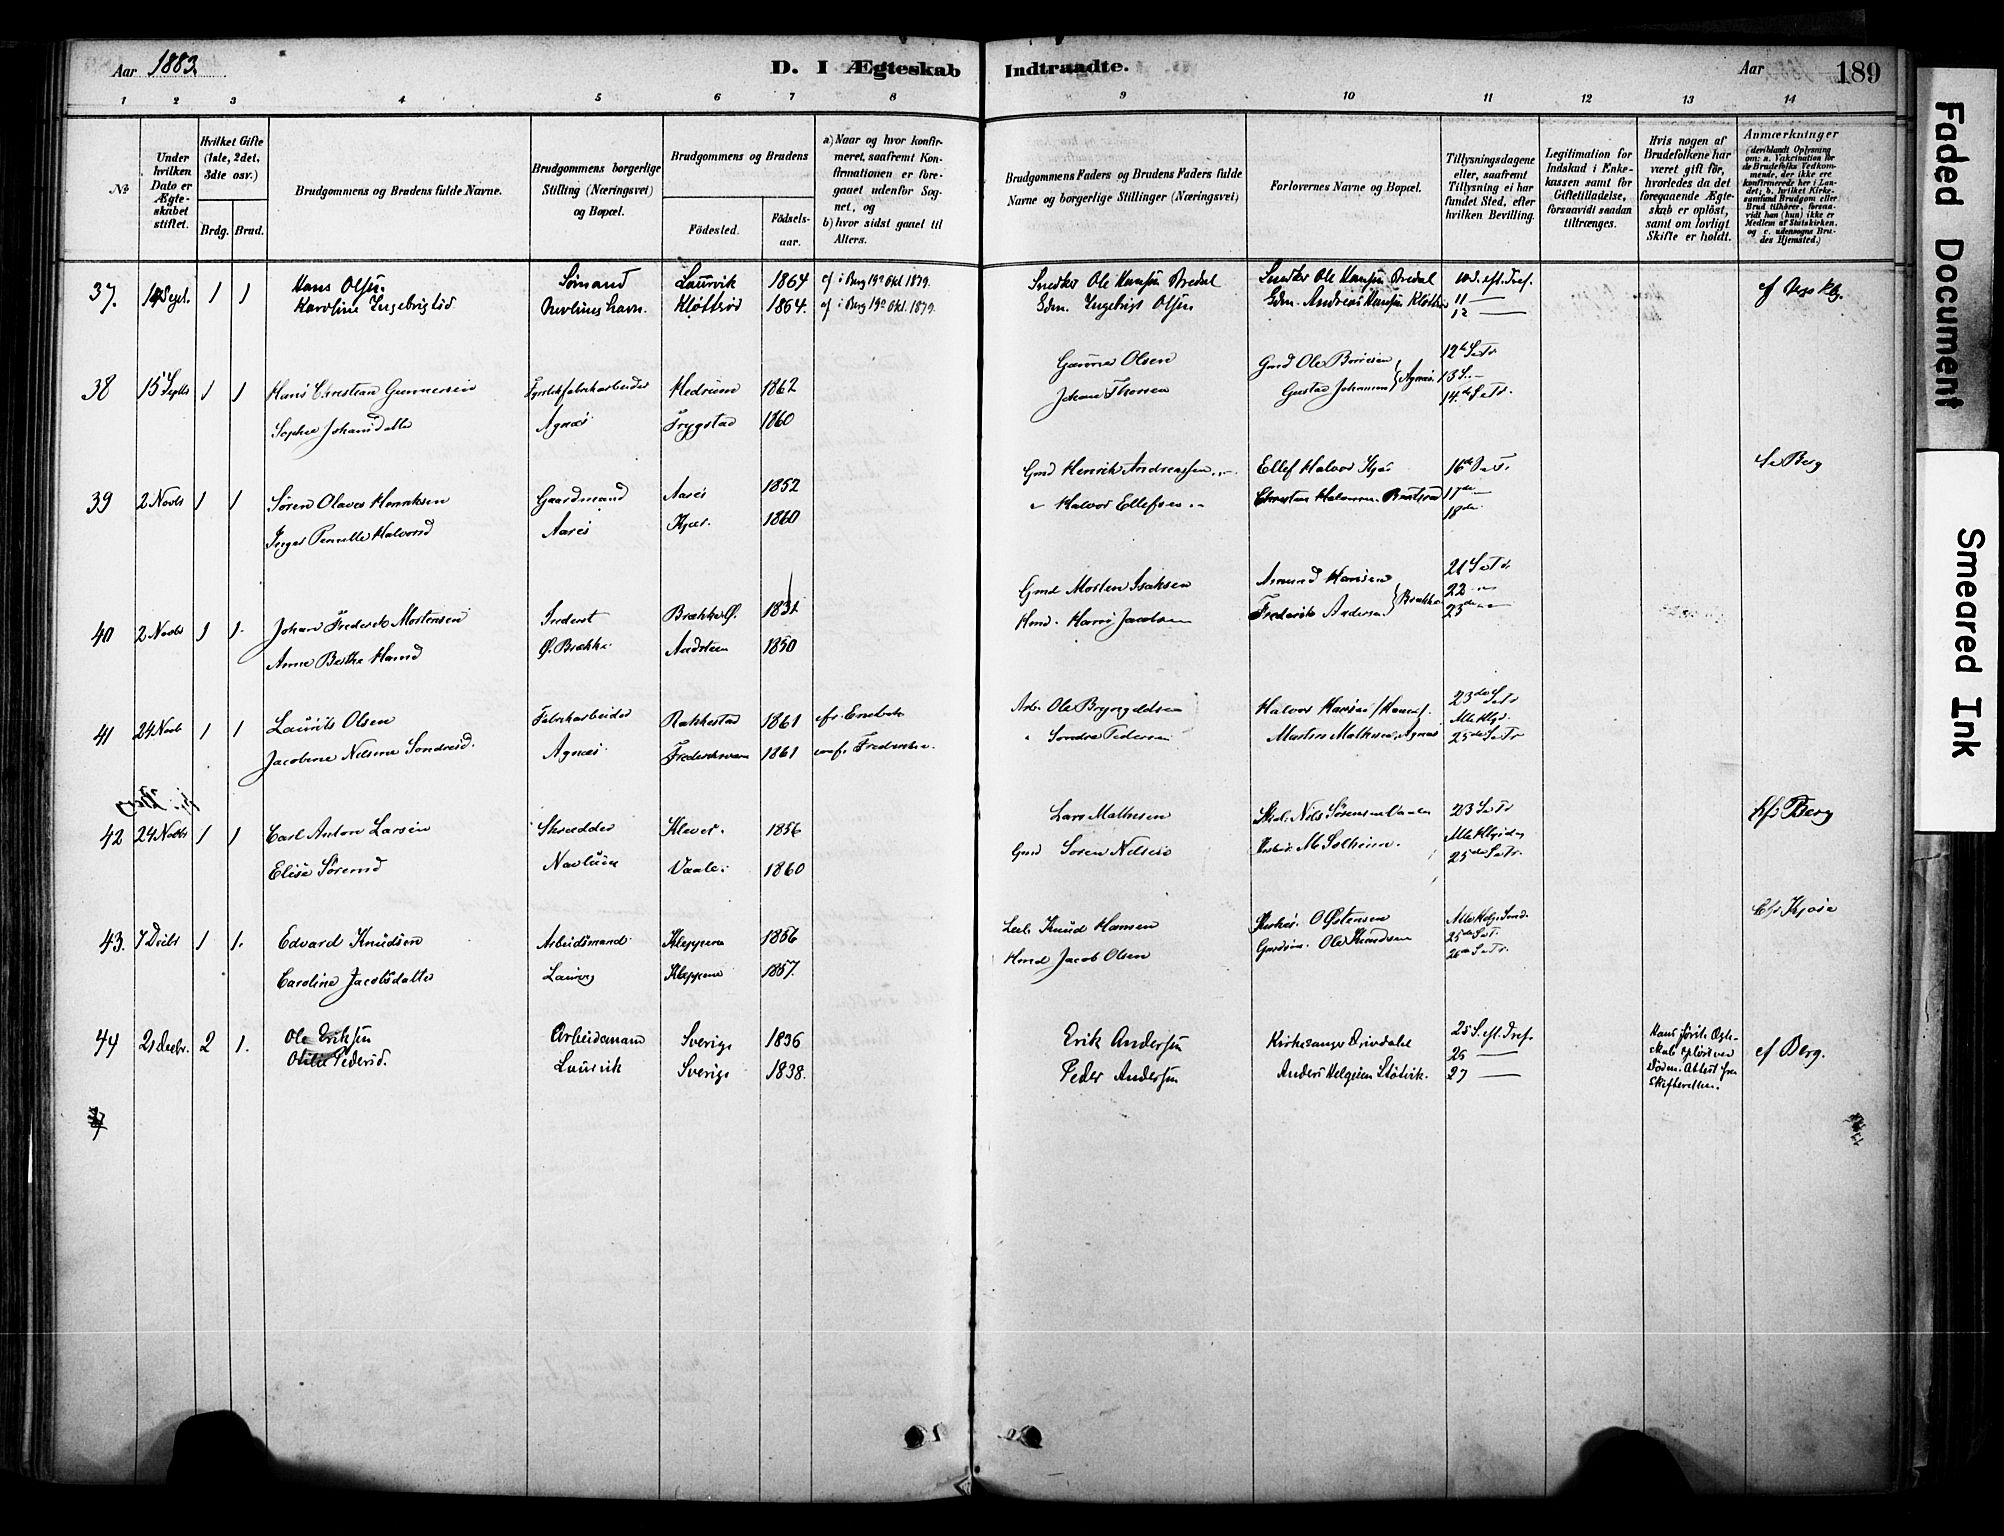 Aar 1883.
D. I Ægteskab Indtraadte.
Aar
189
1 2 3 4 5 6 7 8 9 10 11 12 13 14
№
Under hvilken Dato er Ægteskabet stiftet.
Hvilket Gifte (1ste, 2det, 3die osv.)
Brdg. Brud.
Brudgommens og Brudens fulde Navne.
Brudgommens borgerlige Stilling (Næringsvei) og Bopæl.
Brudgommens og Brudens
Födested. Födselsaar.
a) Naar og hvor konfirmeret, saafremt Konfirmationen er foregaaet udenfor Sognet, og
b) hvor sidst gaaet til Alters.
Brudgommens Faders og Brudens Faders fulde Navne og borgerlige Stillinger (Næringsvei)
Forlovernes Navne og Bopæl.
Tillysningsdagene eller, saafremt Tillysning ei har fundet Sted, efter hvilken Bevilling.
Legitimation for Indskud i Enkekassen samt for Giftetilladelse, forsaavidt saadan tiltrænges.
Hvis nogen af Brudefolkene har været gift för, hvorledes da det foregaaende Ægteskab er oplöst, samt om lovligt Skifte er holdt.
Anmærkninger (deriblandt Oplysning om: a. Vakcination for de Brudefolks Vedkommende, der ikke ere konfirmerede her i Landet; b. hvilket Kirkesamfund Brudgom eller Brud tilhører, forsaavidt han (hun) ikke er Medlem af Statskirken, og c. udensogns Brudes Hjemsted.)
37. 14 Sept. 1 1 Hans Olsen Sømand Laurvik 1864 cf i Berg 19de Okt. 1879. Snedker Ole Hansen Bredal Snedker Ole Hansen Bredal 10 S. eft. Tref.
Karoline Ingebrigtsd Nevlunghavn. Kløttrød 1864. cf i Berg 19de Okt. 1879. Gdm. Ingebrigt Olsen Gdm. Andreas Hansen Kløttrød 11 —
12 —
38 15 Septbr 1 1 Hans Christian Gunnersen Fyrstikfabrikarbeider Hedrum 1862 Gunner Olsen Gmd Ole 12te S e Tr
Sophie Johansdatter Agnæs Frygstad 1860 Johan Thorsen Gustav Johannsen Agnæs. 13 S —
14de S e Tr.
39 2 Novbr 1 1 Søren Olaves Henriksen Gaardmand Aarøs 1852 Gmd Henrik Andreassen Ellef Halvor Kjær 16de S e T. Se Berg
Inger Pernille Halvorsd Aarøs Kjær. 1860 " Halvor Ellefsen Christen Halvorsen 17de —
18de
40 2 Novbr 1 1. Johan Frederik Mortensen Inderst Brække Ø. 1831 Gmd Morten Isaksen Amund Hansen 21 S e Tr
Anne Berthe Hansd Ø. Brække Aadsteen 1850 Hmd. Hans Jacobsen Frederik Andersen Brække 22 —
23de —
41 24 Novb 1 1 Laurits Olsen Fabrikarbeider Rakkestad 1861 cfr. Enebak Arb. Ole Bryngeldsen Halvor Hansen 23de S e Tr
Jacobine Nilsine Sondresd. Agnæs Frederiksværn 1861 conf. Fredriksv. " Sondre Pedersen Martin Mathisen Agnæs Alle Hlgd.
25de S e Tr
42 24 Novbr 1 1 Carl Anton Larsen Skrædder Klever. 1856 Lars Mathisen Nils Sørensen Vaale 23 S e Tr Cfr Berg
Elise Sørensd Navlund Vaale. 1860 Gmd Søren Nilsen M Solheim. Alle Hlgd
25de S e Tr.
43. 7 Decbr 1 1. Edvard Knudsen Arbeidsmand Kleppene 1856 Knud Hansen Kirkes. O Østensen Alle Helg. Sønd. Cfr Kjose
Caroline Jacobsdatter Laurvig Kleppene 1857. Hmd Jacob Olsen Ole Knudsen 25de S e T.
26de S e Tr.
44 21 Decbr. 2 1. Ole Eriksen Arbeidsmand Sverige 1836 Erik Andersen Kirkesanger Drivdahl 25 S. eft. Tref. Hans förste Ægteskab oplöst ved Döden. Attest fra Skifteretten. cf Berg.
Otilie Pedersd. Laurvik Sverige 1838. Peder Andersen Anders Helgesen Støtvik. 26 —
27 —
Faded Document
Smeared Ink